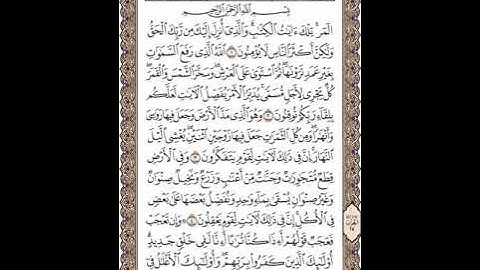 بِسْمِ ٱللَّهِ ٱلرَّحْمَٰنِ ٱلرَّحِيمِ
الٓمٓر ۚ تِلْكَ ءَايَٰتُ ٱلْكِتَٰبِ ۗ وَٱلَّذِىٓ أُنزِلَ إِلَيْكَ مِن رَّبِّكَ ٱلْحَقُّ
وَلَٰكِنَّ أَكْثَرَ ٱلنَّاسِ لَا يُؤْمِنُونَ ١ ٱللَّهُ ٱلَّذِى رَفَعَ ٱلسَّمَٰوَٰتِ
بِغَيْرِ عَمَدٍ تَرَوْنَهَا ۖ ثُمَّ ٱسْتَوَىٰ عَلَى ٱلْعَرْشِ ۖ وَسَخَّرَ ٱلشَّمْسَ وَٱلْقَمَرَ ۖ
كُلٌّ يَجْرِى لِأَجَلٍ مُّسَمًّى ۚ يُدَبِّرُ ٱلْأَمْرَ يُفَصِّلُ ٱلْءَايَٰتِ لَعَلَّكُم
بِلِقَآءِ رَبِّكُمْ تُوقِنُونَ ٢ وَهُوَ ٱلَّذِى مَدَّ ٱلْأَرْضَ وَجَعَلَ فِيهَا رَوَٰسِىَ
وَأَنْهَٰرًا ۖ وَمِن كُلِّ ٱلثَّمَرَٰتِ جَعَلَ فِيهَا زَوْجَيْنِ ٱثْنَيْنِ ۖ يُغْشِى ٱلَّيْلَ
ٱلنَّهَارَ ۚ إِنَّ فِى ذَٰلِكَ لَءَايَٰتٍ لِّقَوْمٍ يَتَفَكَّرُونَ ٣ وَفِى ٱلْأَرْضِ
قِطَعٌ مُّتَجَٰوِرَٰتٌ وَجَنَّٰتٌ مِّنْ أَعْنَٰبٍ وَزَرْعٌ وَنَخِيلٌ صِنْوَانٌ
وَغَيْرُ صِنْوَانٍ يُسْقَىٰ بِمَآءٍ وَٰحِدٍ وَنُفَضِّلُ بَعْضَهَا عَلَىٰ بَعْضٍ
فِى ٱلْأُكُلِ ۚ إِنَّ فِى ذَٰلِكَ لَءَايَٰتٍ لِّقَوْمٍ يَعْقِلُونَ ٤ ۞ وَإِن تَعْجَبْ
فَعَجَبٌ قَوْلُهُمْ أَءِذَا كُنَّا تُرَٰبًا أَءِنَّا لَفِى خَلْقٍ جَدِيدٍ ۗ
أُو۟لَٰٓئِكَ ٱلَّذِينَ كَفَرُوا۟ بِرَبِّهِمْ ۖ وَأُو۟لَٰٓئِكَ ٱلْأَغْلَٰلُ فِىٓ